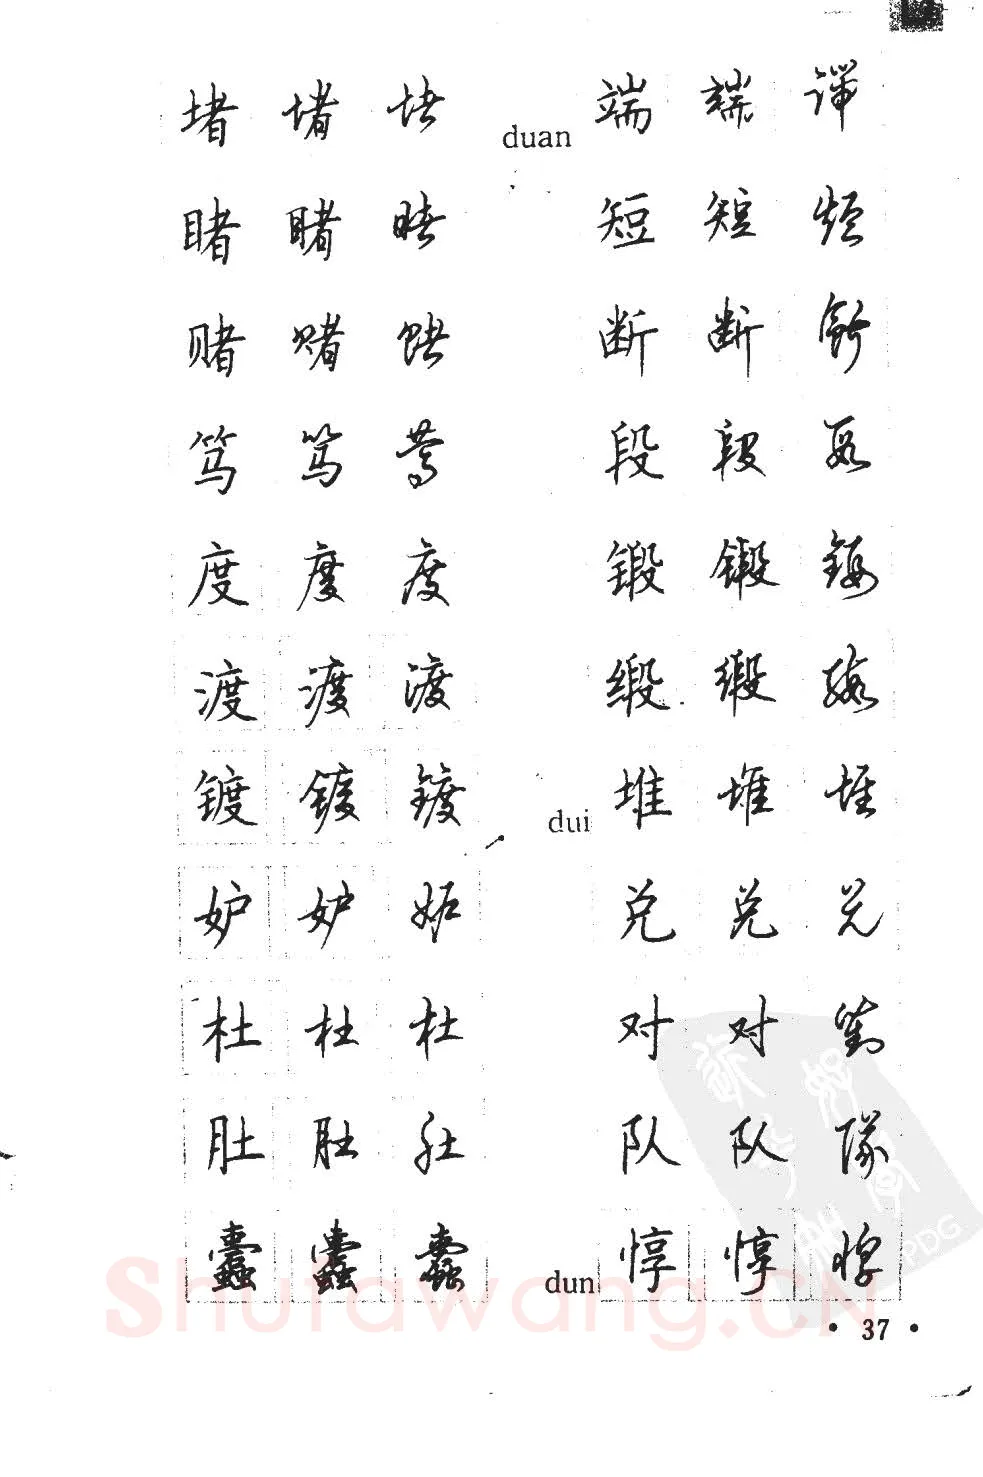 堵 堵 堵
睹 睹 睹
赌 赌 赌
笃 笃 篤
度 度 度
渡 渡 渡
镀 镀 镀
妒 妒 妒
杜 杜 杜
肚 肚 肚
蠹 蠹 蠹
duan 端 端 端
短 短 短
断 断 断
段 段 段
锻 锻 锻
缎 缎 缎
dui 堆 堆 堆
兑 兑 兑
对 对 對
队 队 隊
dun 惇 惇 惇
Shufawang.CN
PDG
• 37 •